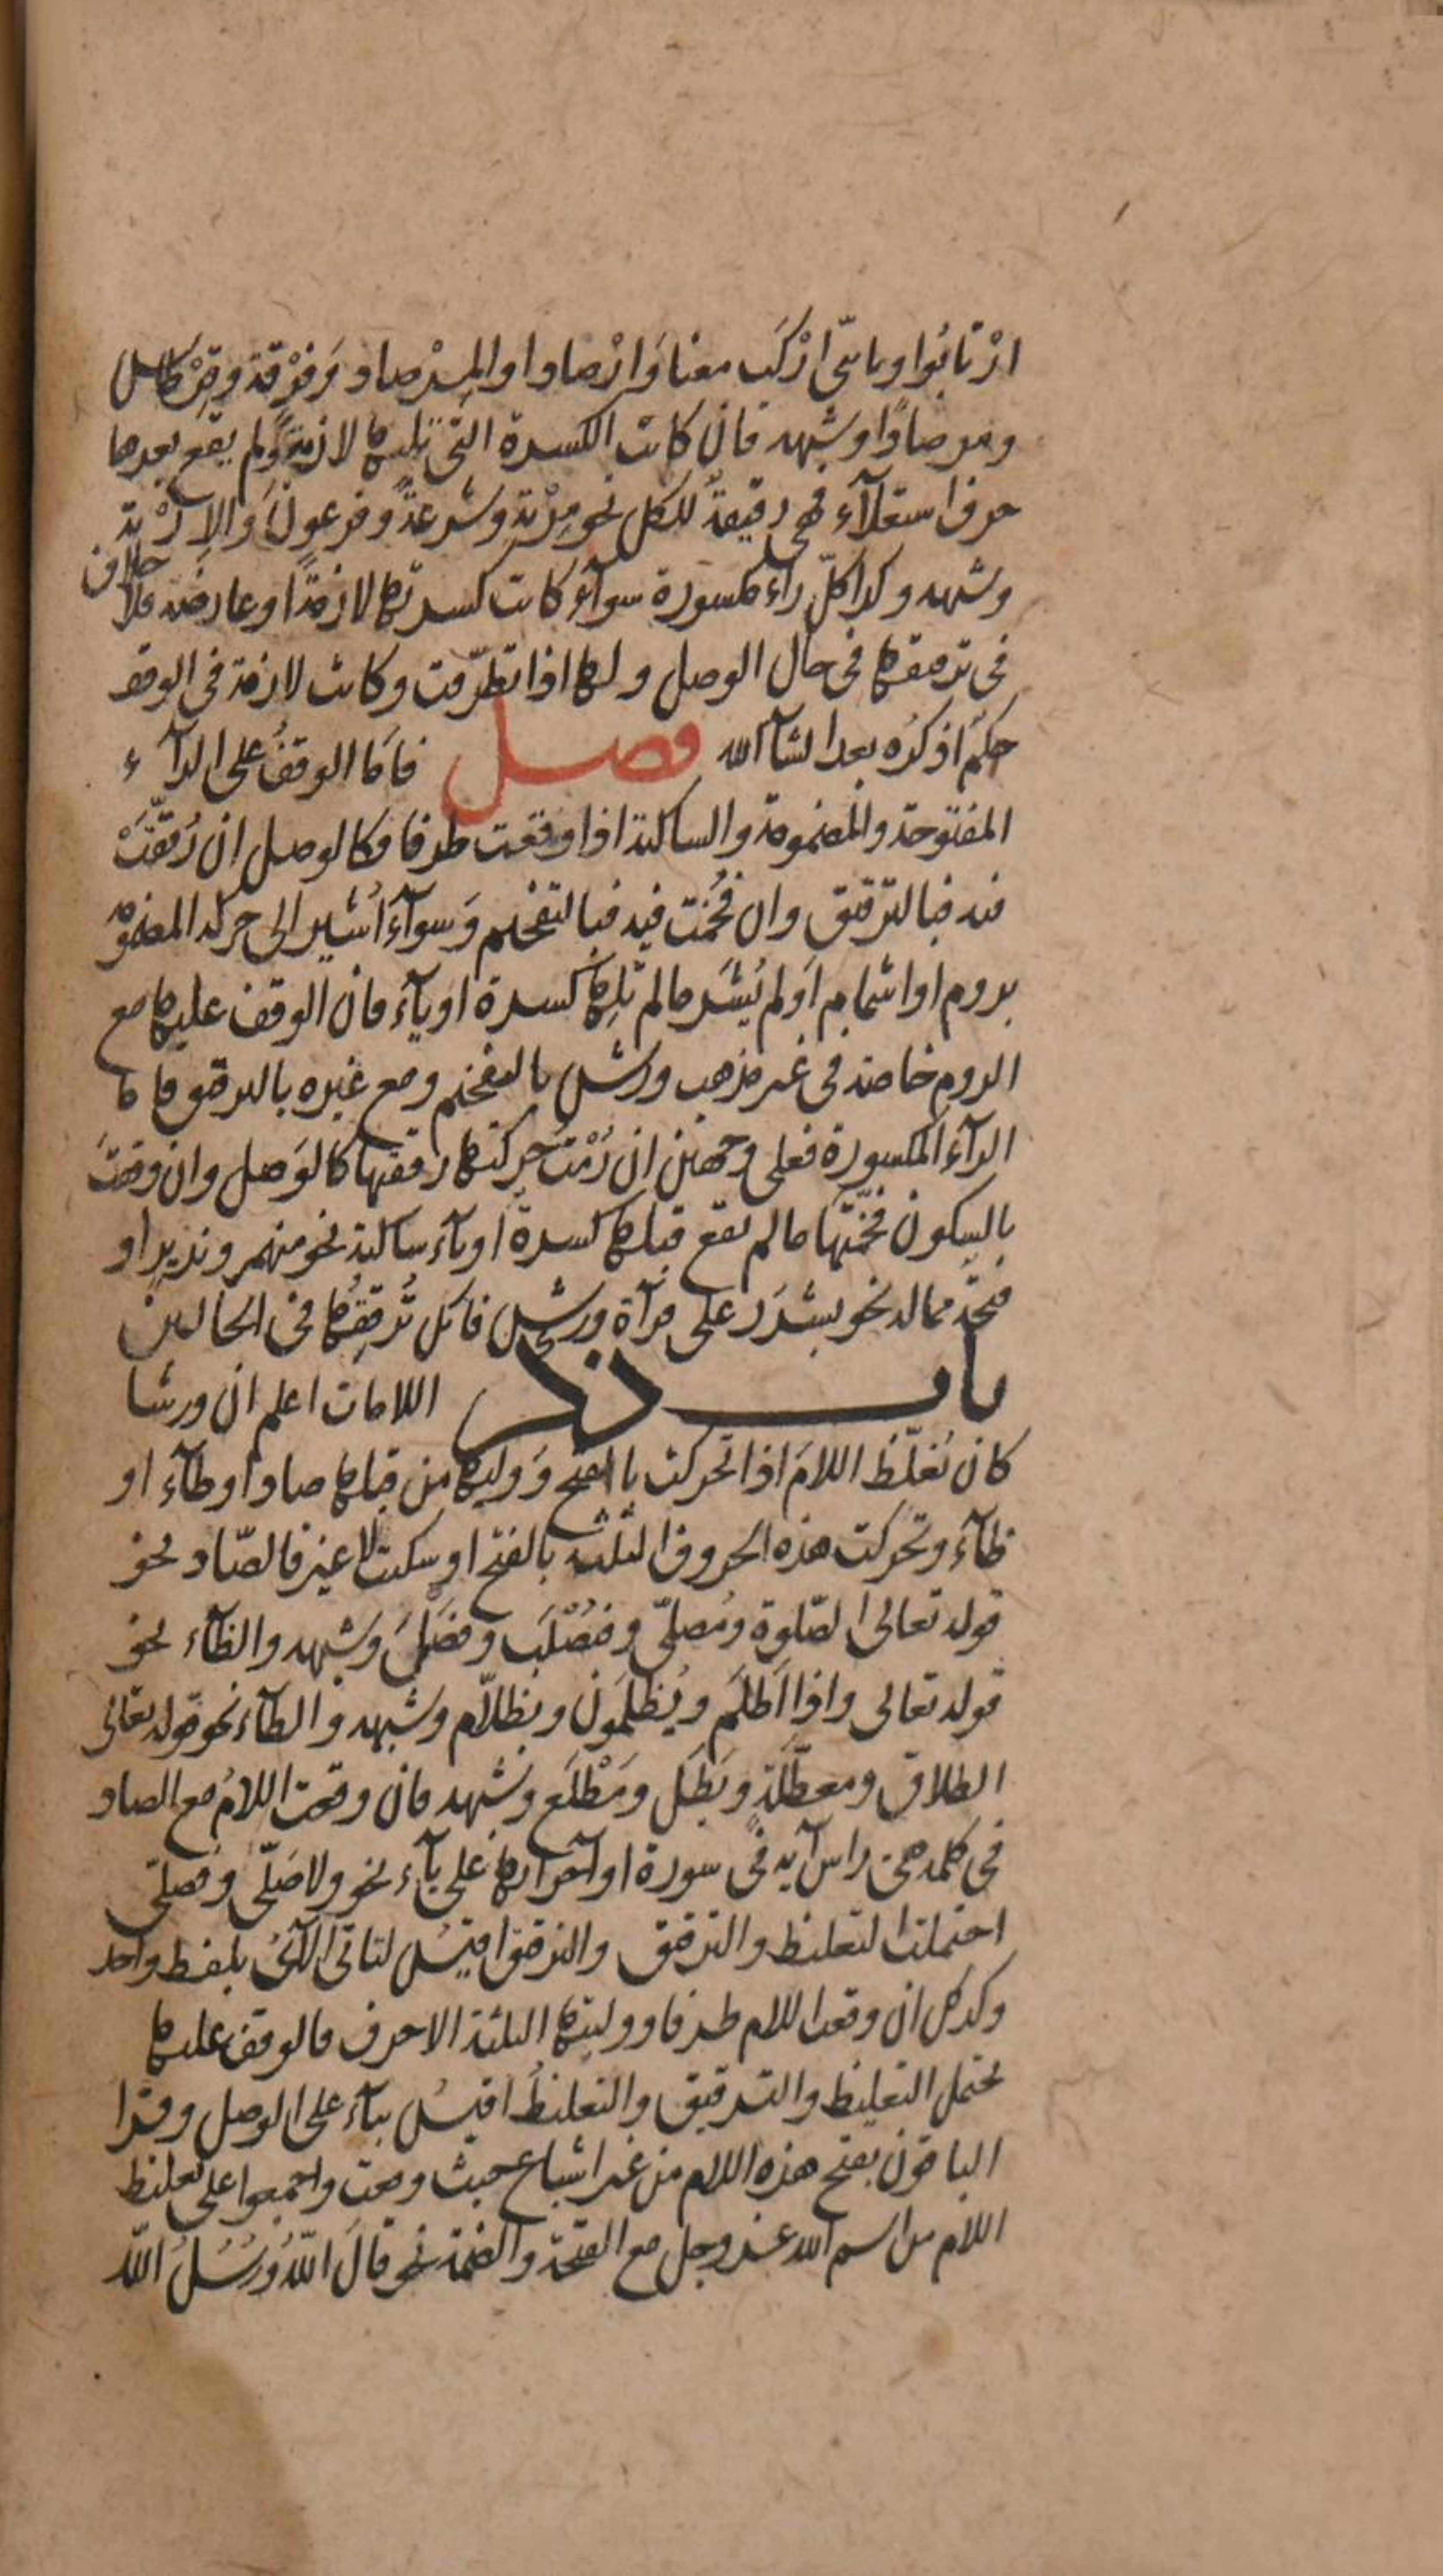 ارْتابُوا ويا بنيّ ارْكَب معنا وَارْصادا والمِرْصاد وَفِرْقة وقِرْطاس
ومرصادًا وشبهه فان كانت الكسرة التي تليها لازمةً ولم يقع بعدها
حرف استعلاء فهي رقيقةٌ للكل نحو مِرْيَةٍ وشرعةً وفرعونَ والاِرْبة
وشبهه وكذا كلّ راء مكسورة سوآء كانت كسرتها لازمةً او عارضه فلا خلاف
في ترقيقها في حال الوصل ولها اذا تطرّفت وكانت لازمة في الوقف
حكمٌ اذكره بعد انشآ الله فصل فامّا الوقفُ على الرآء
المفتوحة والمضمومة والساكنة اذا وقعت طرفا فكالوصل ان رُقِّقَتْ
فيه فبالترقيق وان فُخمت فيه فبالتفخيم وَسوآءَ اُشير الى حركة المضمومة
بروم او اشمام اَولم يُشَر مالم تلِها كسرة او يآء فان الوقف عليها مع
الروم خاصة في غير مذهب ورش بالتفخيم ومع غيره بالترقيق فاما
الرآء المكسورة فعلى وجهين ان رُمْتَ حركتها رققتها كالوَصل وان وقفتَ
بالسكون فخّمتها مالم يقع قبلها كسرة او يآء ساكنة نحو منهمر ونذير او
فتحة ممالة نحو بشرَر على قرآة ورش فانك تُرققُها في الحالين
باب ذكر اللامات اعلم ان ورشا
كان يُغلّظ اللامَ اذا تحركت بالفتح وَوليها من قبلها صاد او طآء او
ظآء وتحركت هذه الحروف الثلثه بالفتح او سكنت لا غير فالصّاد نحو
قوله تعالى الصّلوة ومُصلّى وفيُصْلَب وفصَلَ وشبهه والظآء نحو
قوله تعالى واذا اَظلَم ويُظلَمُون وبظلّام وشبهه والطآء نحو قوله تعالى
الطلاق ومعطّلةٍ وبَطَل ومَطْلَع وشبهه فان وقعت اللامُ مع الصاد
في كلمة هي راس آيه في سورة اواخر ايها على يآء نحو ولا صَلّى وفصلى
احتملت التغليظ والترقيق والترقيق اقيسُ لتاتي الآيُ بلفظ واحد
وكذلك ان وقعت اللام طرفا ووليتها الثلثة الاحرف فالوقف عليها
يحتمل التغليظ والترقيق والتغليظُ اقيسُ بنآء على الوصل وقرا
الباقون بفتح هذه اللام من غير اشباع حيث وقعت واجمعوا على تغليظ
اللام من اسم الله عز وجل مع الفتحة والضمة نحو قالَ اللّهُ وَرُسُلُ اللّه